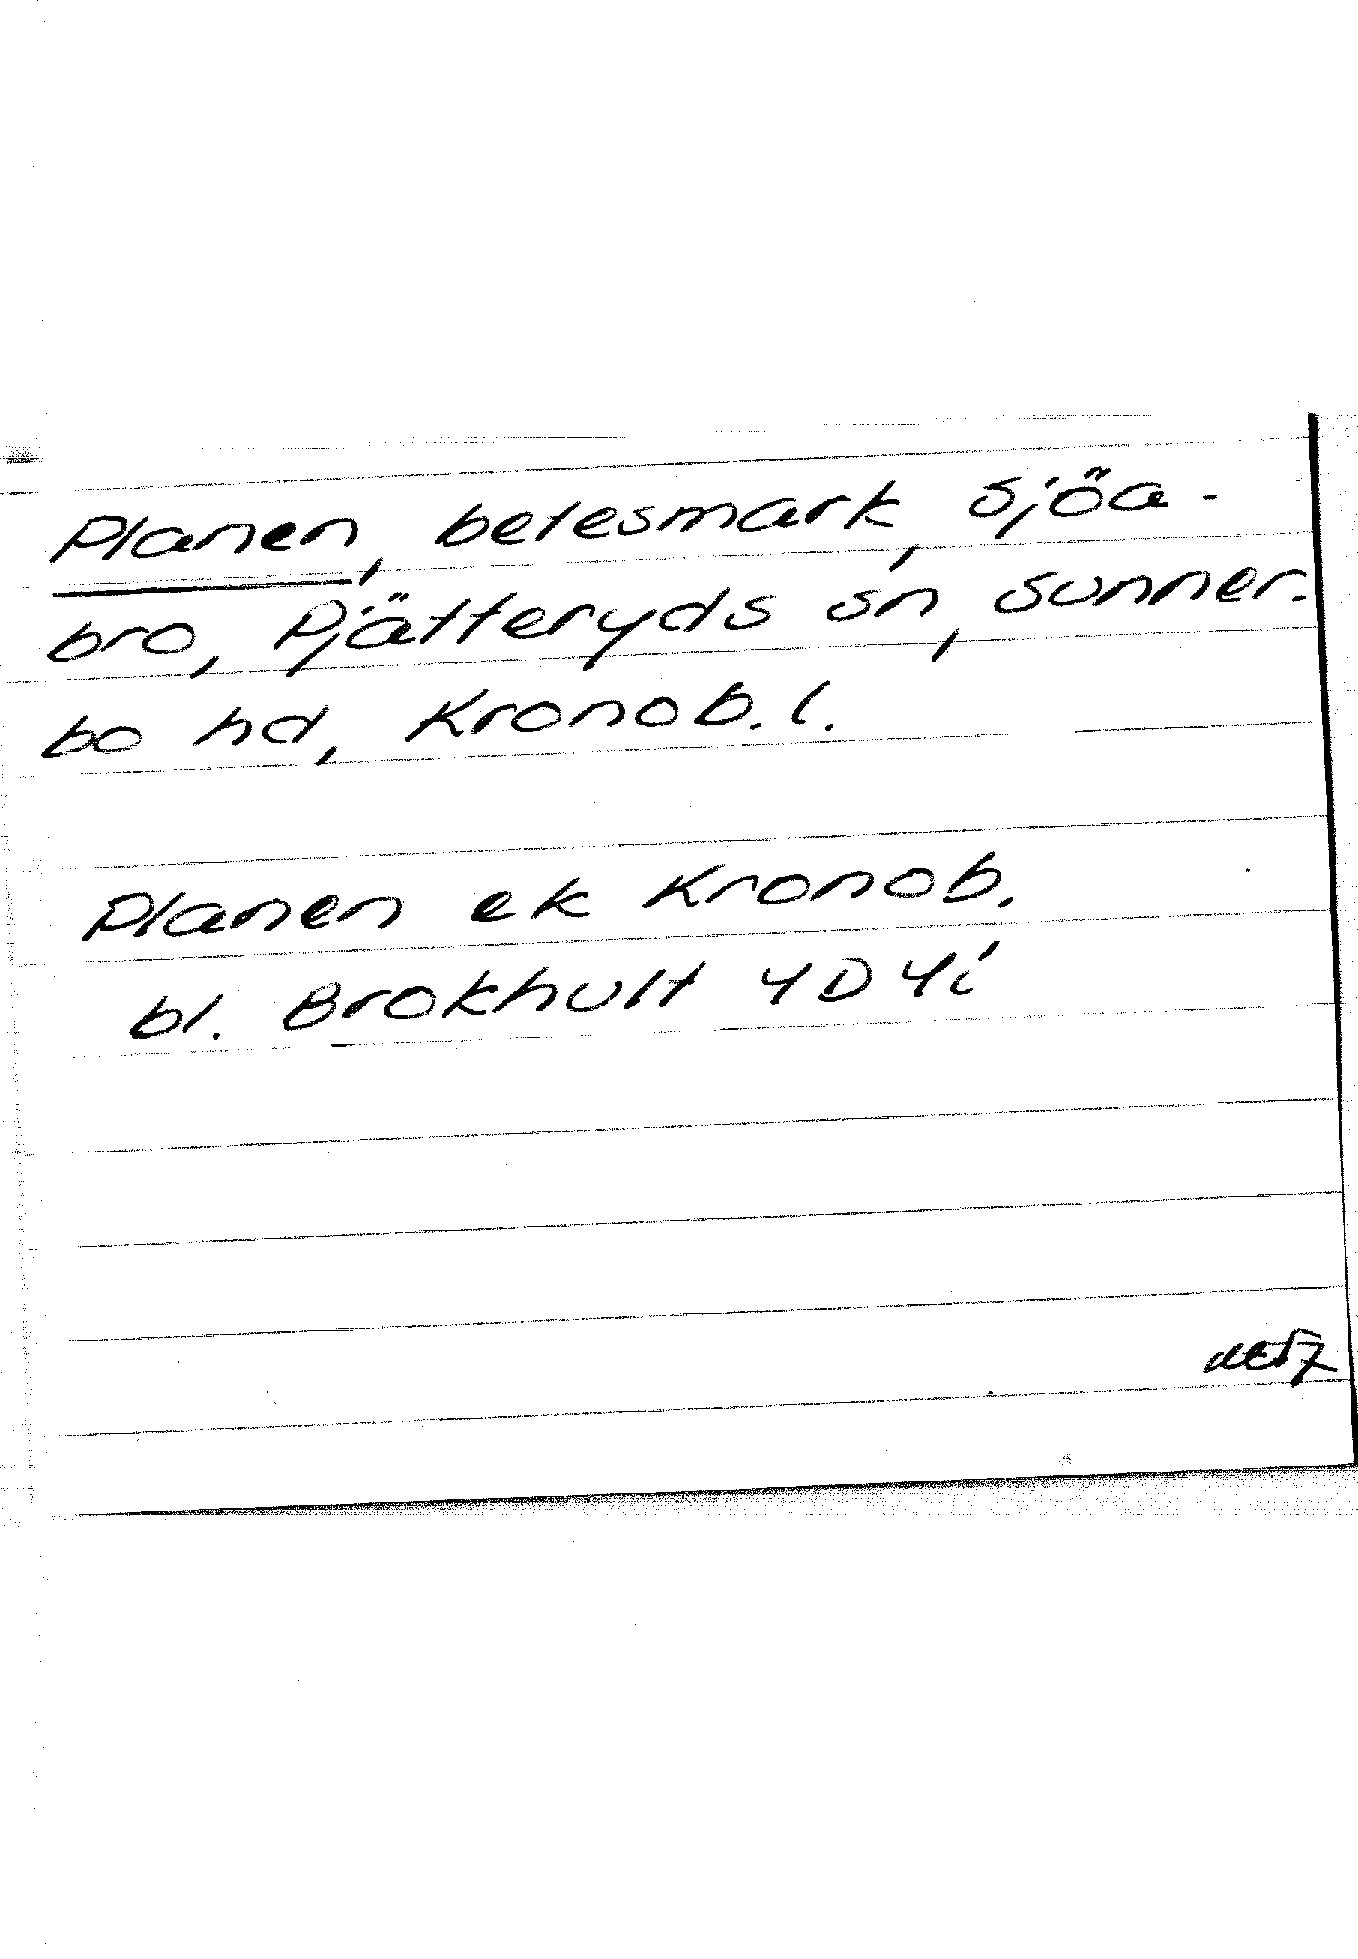 Planen, betesmark, Sjöa-
bro, Pjätteryds sn, Sunner-
bo hd, Kronob. l.
Planen ek Kronob.
bl. Brokhult 4D 4i